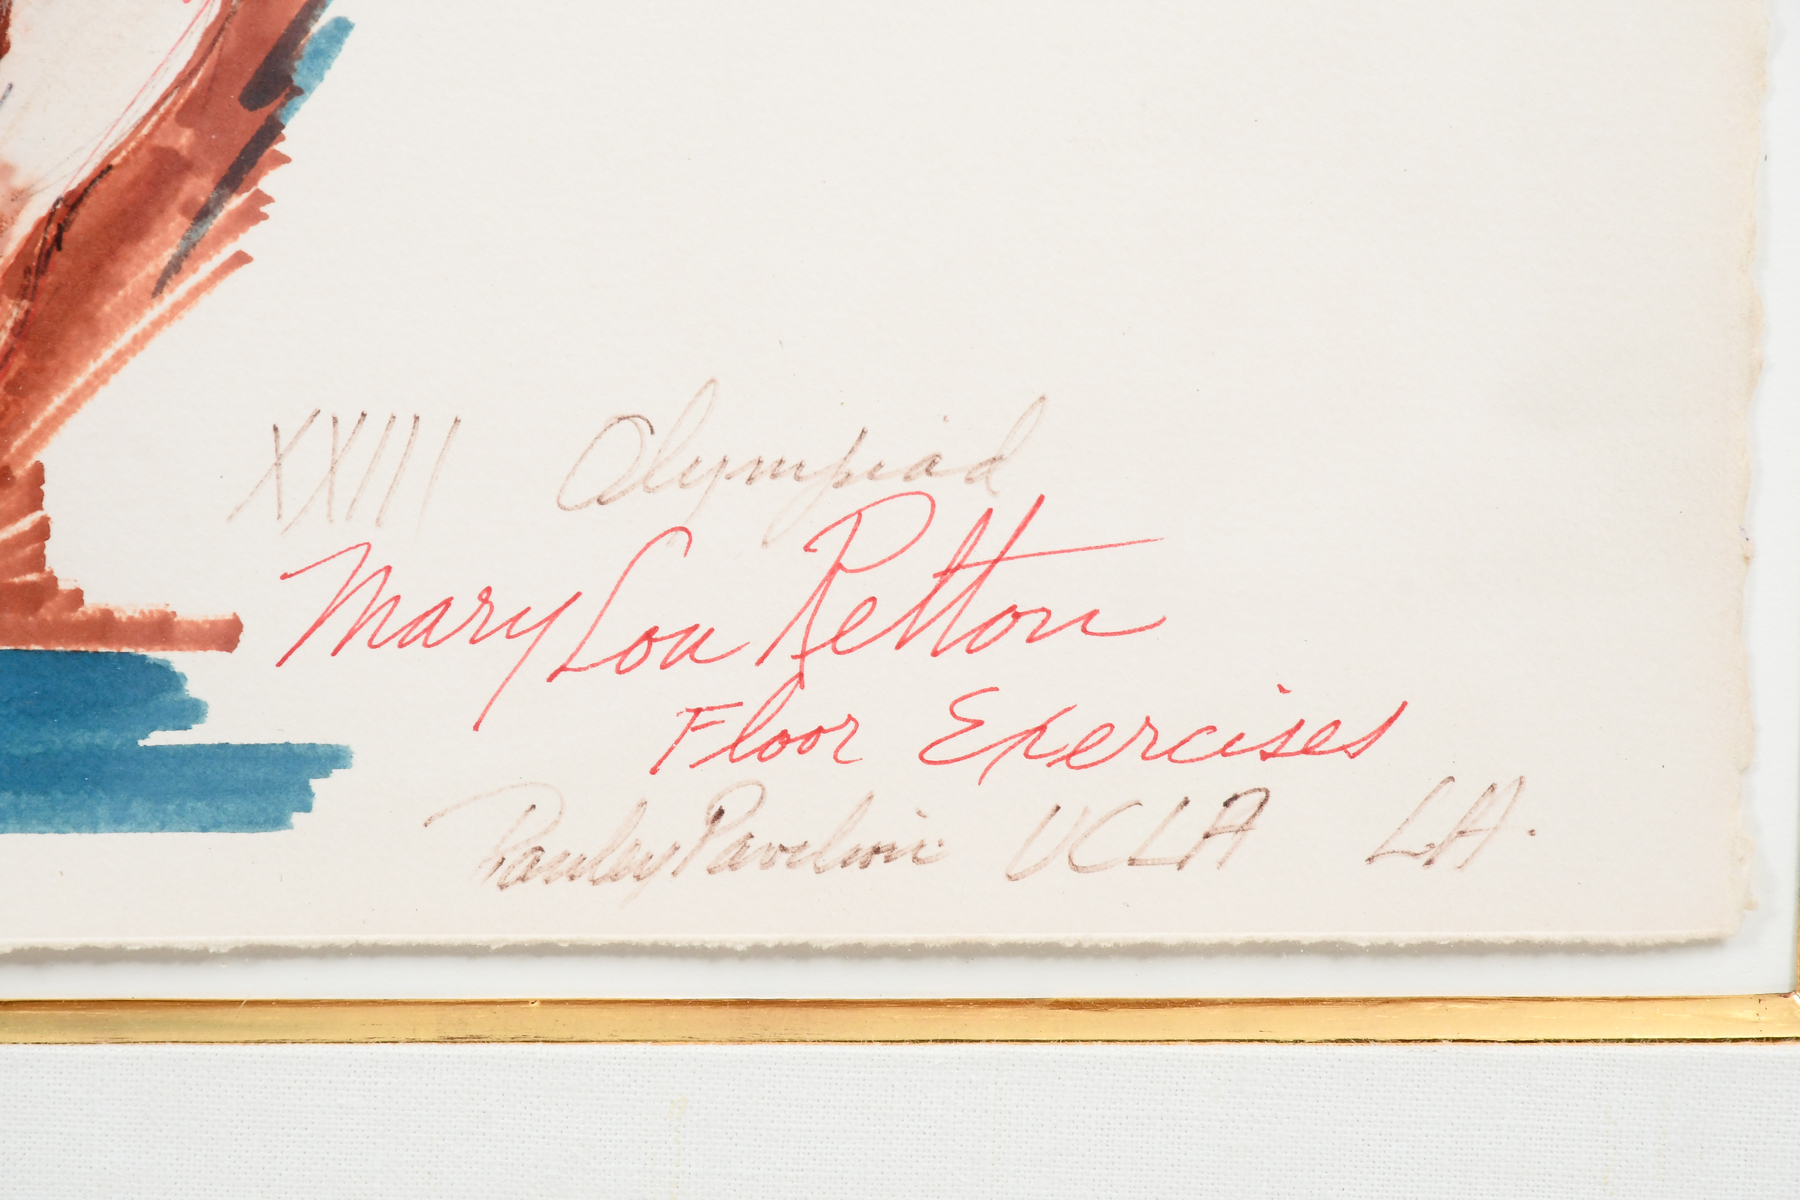 XXIII Olympiad
Mary Lou Retton
Floor Exercises
Pauley Pavilion UCLA LA.